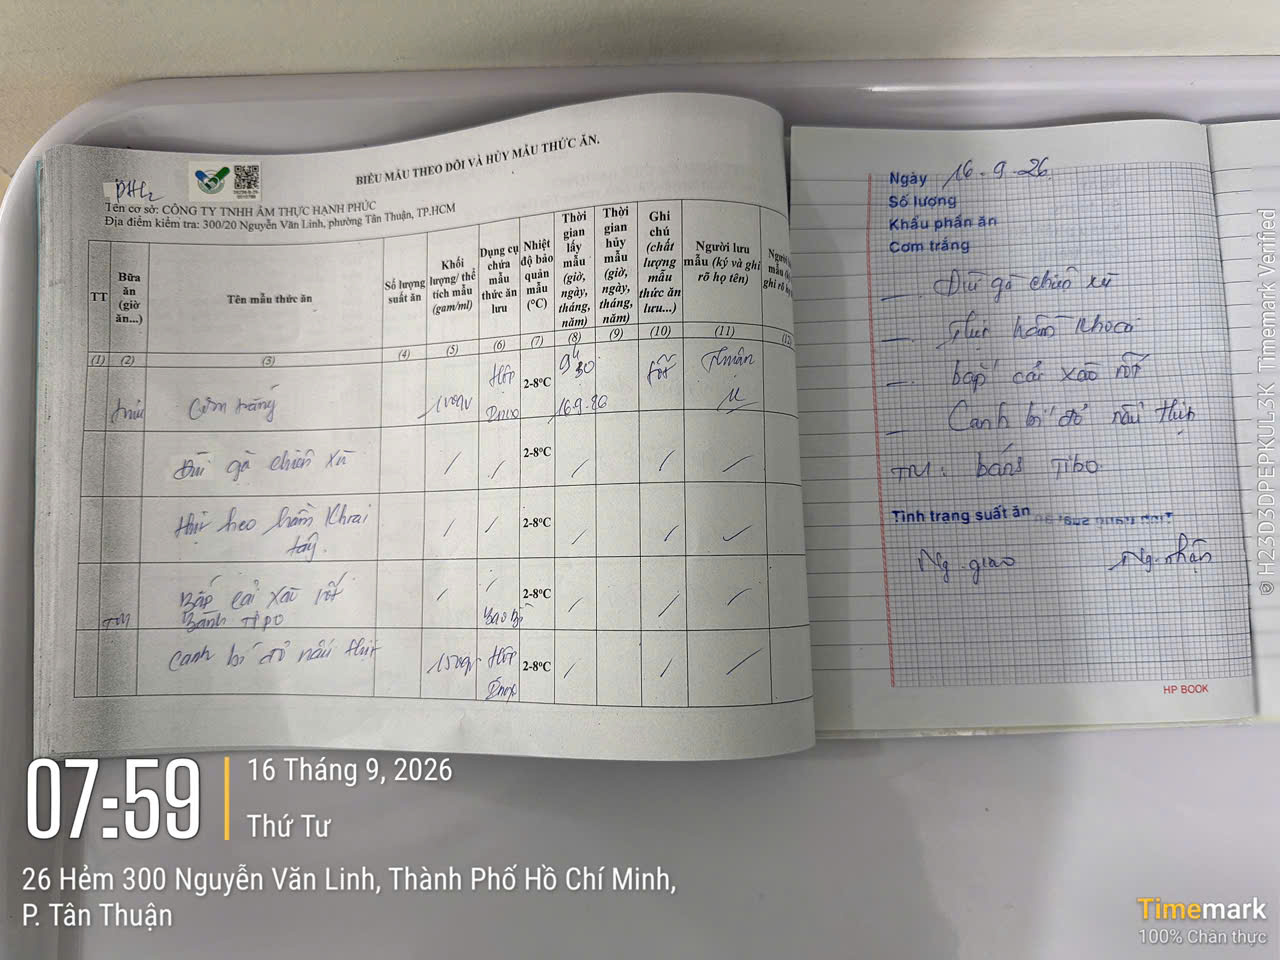 BIỂU MẪU THEO DÕI VÀ HỦY MẪU THỨC ĂN.
ĐHL2
Tên cơ sở: CÔNG TY TNHH ẨM THỰC HẠNH PHÚC
Địa điểm kiểm tra: 300/20 Nguyễn Văn Linh, phường Tân Thuận, TP.HCM
TT
Bữa ăn (giờ ăn...)
Tên mẫu thức ăn
Số lượng suất ăn
Khối lượng/ thể tích mẫu (gam/ml)
Dụng cụ chứa mẫu thức ăn lưu
Nhiệt độ bảo quản mẫu (°C)
Thời gian lấy mẫu (giờ, ngày, tháng, năm)
Thời gian hủy mẫu (giờ, ngày, tháng, năm)
Ghi chú (chất lượng mẫu thức ăn lưu...)
Người lưu mẫu (ký và ghi rõ họ tên)
(1) (2) (3) (4) (5) (6) (7) (8) (9) (10) (11) (12)
Cơm trắng 100gr Hộp Inox 2-8°C 9h30 16.9.26 Tốt Thuân
Đùi gà chiên xù / / 2-8°C / / /
Thịt heo hầm Khoai tây / / 2-8°C / / /
Bắp cải xào rốt / / 2-8°C / / /
TM Bánh TIPO Bao Bì
Canh bí đỏ nấu thịt 150gr Hộp Inox 2-8°C / / /
Ngày 16.9.26
Số lượng
Khẩu phần ăn
Cơm trắng
_ Đùi gà chiên xù
_ Thịt hầm Khoai
_ bắp cải xào rốt
_ Canh bí đỏ nấu thịt
TM: bánh Tipo
Tình trạng suất ăn
Ng.giao Ng.nhận
HP BOOK
07:59
16 Tháng 9, 2026
Thứ Tư
26 Hẻm 300 Nguyễn Văn Linh, Thành Phố Hồ Chí Minh,
P. Tân Thuận
Timemark
100% Chân thực
© H23D3DPEPKUL3K Timemark Verified